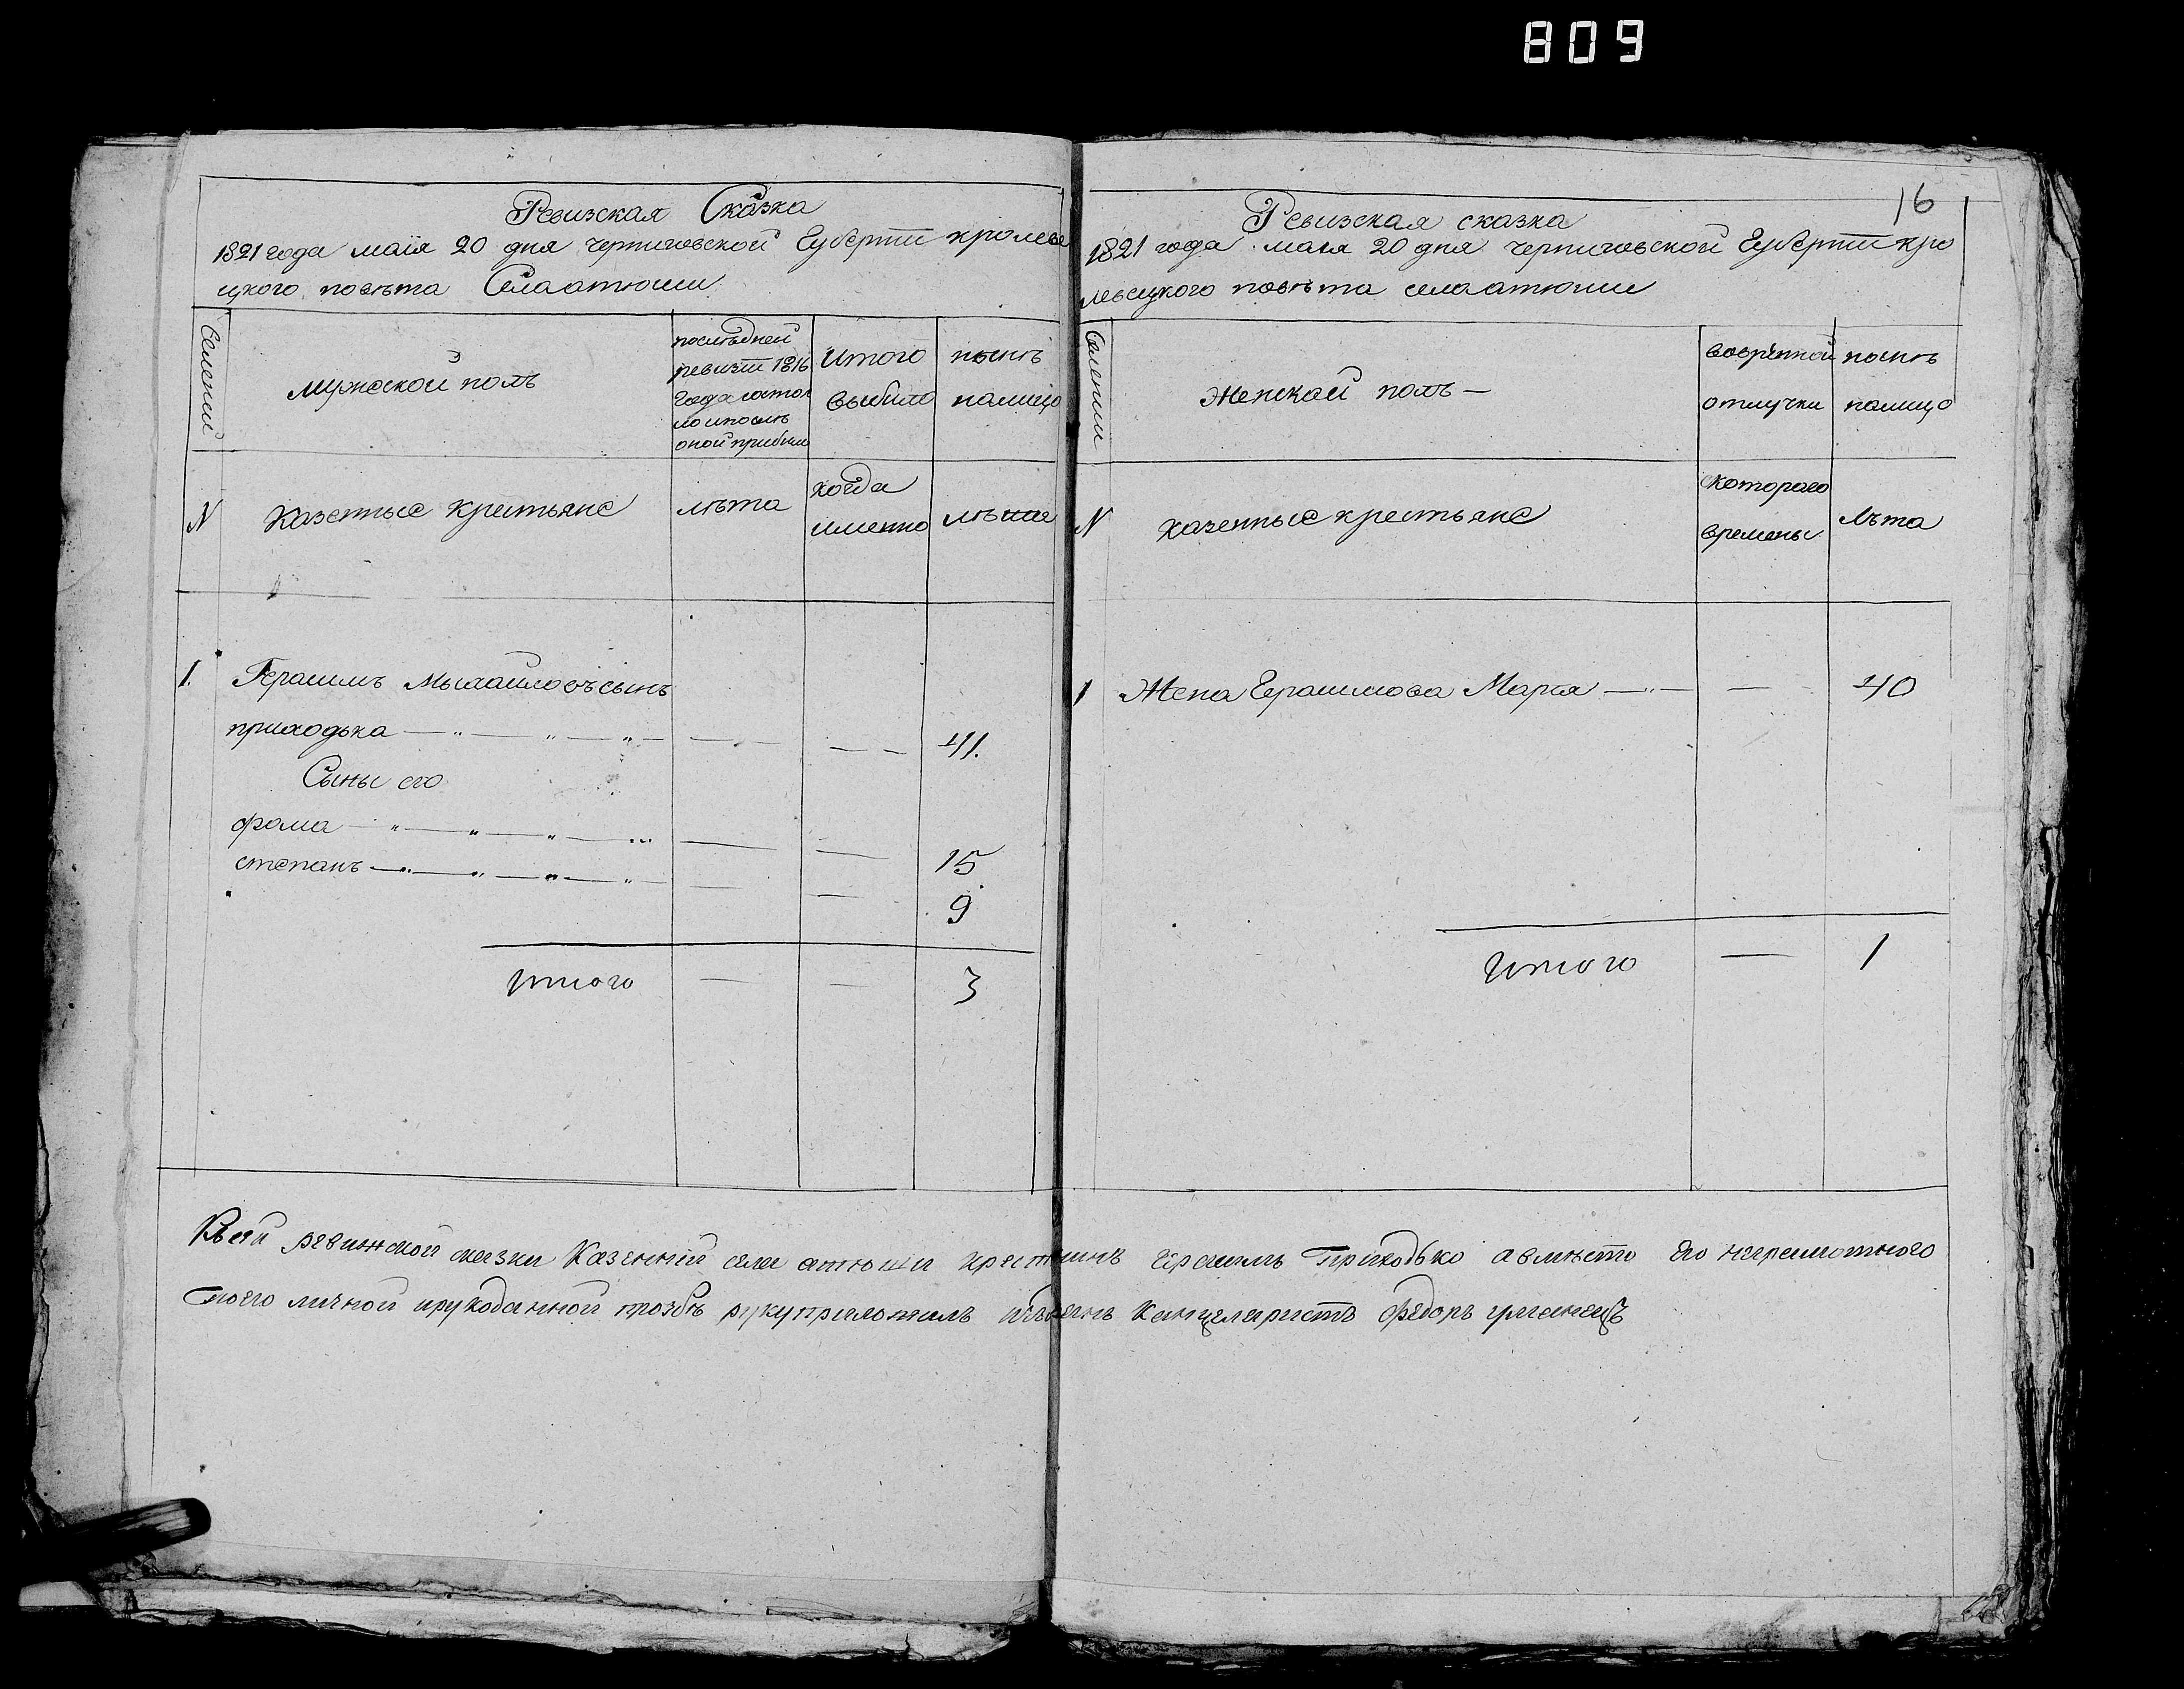 809
Ревизская Сказка
1821 года маія 20 дня черниговской Губерніи кролеве
цкого повѣта Села атюши
Семеніи
мужеской полъ
послѣдней
ревизіи 1816
Года состоя
ло и послѣ
оной прибыли
Итого
выбило
нынѣ
налицо
N
Казенные крестьяне
лѣта
когда
именно
лѣта
1. Герасимъ Мыхайловъ сынъ
приходька — " — " — " — — — 41.
Сыны его
фома — " — " — " — — — 15
степанъ — " — " — " — " — — — 9
Итого — — 3
16
Ревизская сказка
1821 года мая 20 дня черниговской Губерніи кро
левецкого повѣта села атюши
Семеніи
Женской полъ —
вовренной
отлучки
нынѣ
налицо
N
казенные крестьяне
скотораго
времены
Лѣта
1 Жена Герасимова Марія — " — — 40
Итого — 1
Ксей ревижской сказки Казенній села атюши крестянинъ Герасимъ Приходько авмѣсто его неграмотного
поего личной ирукоданной прозбѣ руку приложилъ Канцеляристъ Федоръ